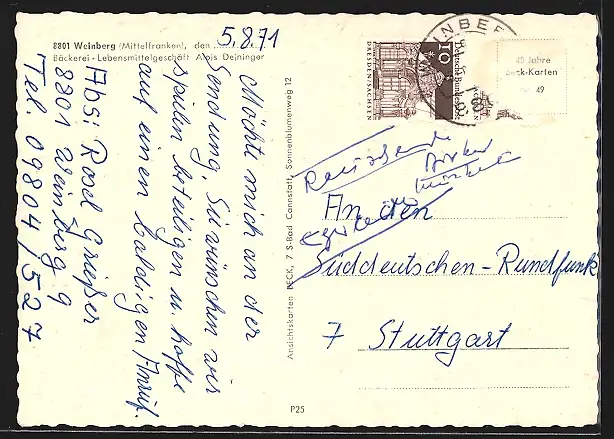 8801 Weinberg (Mittelfranken), den 5.8.71
Bäckerei - Lebensmittelgeschäft Alois Deininger
Möchte mich an der
Sendung, Sie wünschen wir
spielen beteiligen u. hoffe
auf einen baldigen Anruf.
Abs: Rosel
8801 Weinberg 9
Tel. 09804/527
Ansichtskarten BECK, 7 S-Bad Cannstatt, Sonnenblumenweg 12
10
Deutsche Bundespost
DRESDEN/SACHSEN
40 Jahre
Beck-Karten
49
An den
Süddeutschen-Rundfunk
7 Stuttgart
P25